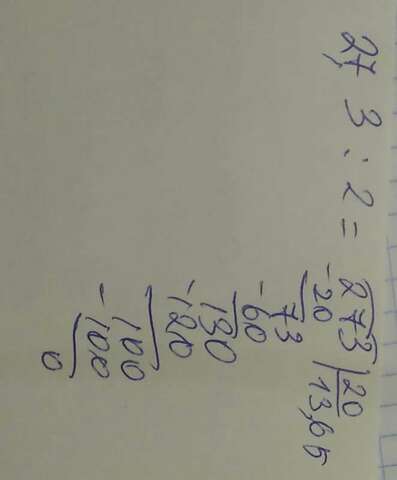 27,3 : 2 = 273 | 20
-20 13,65
73
-60
130
-120
100
-100
0